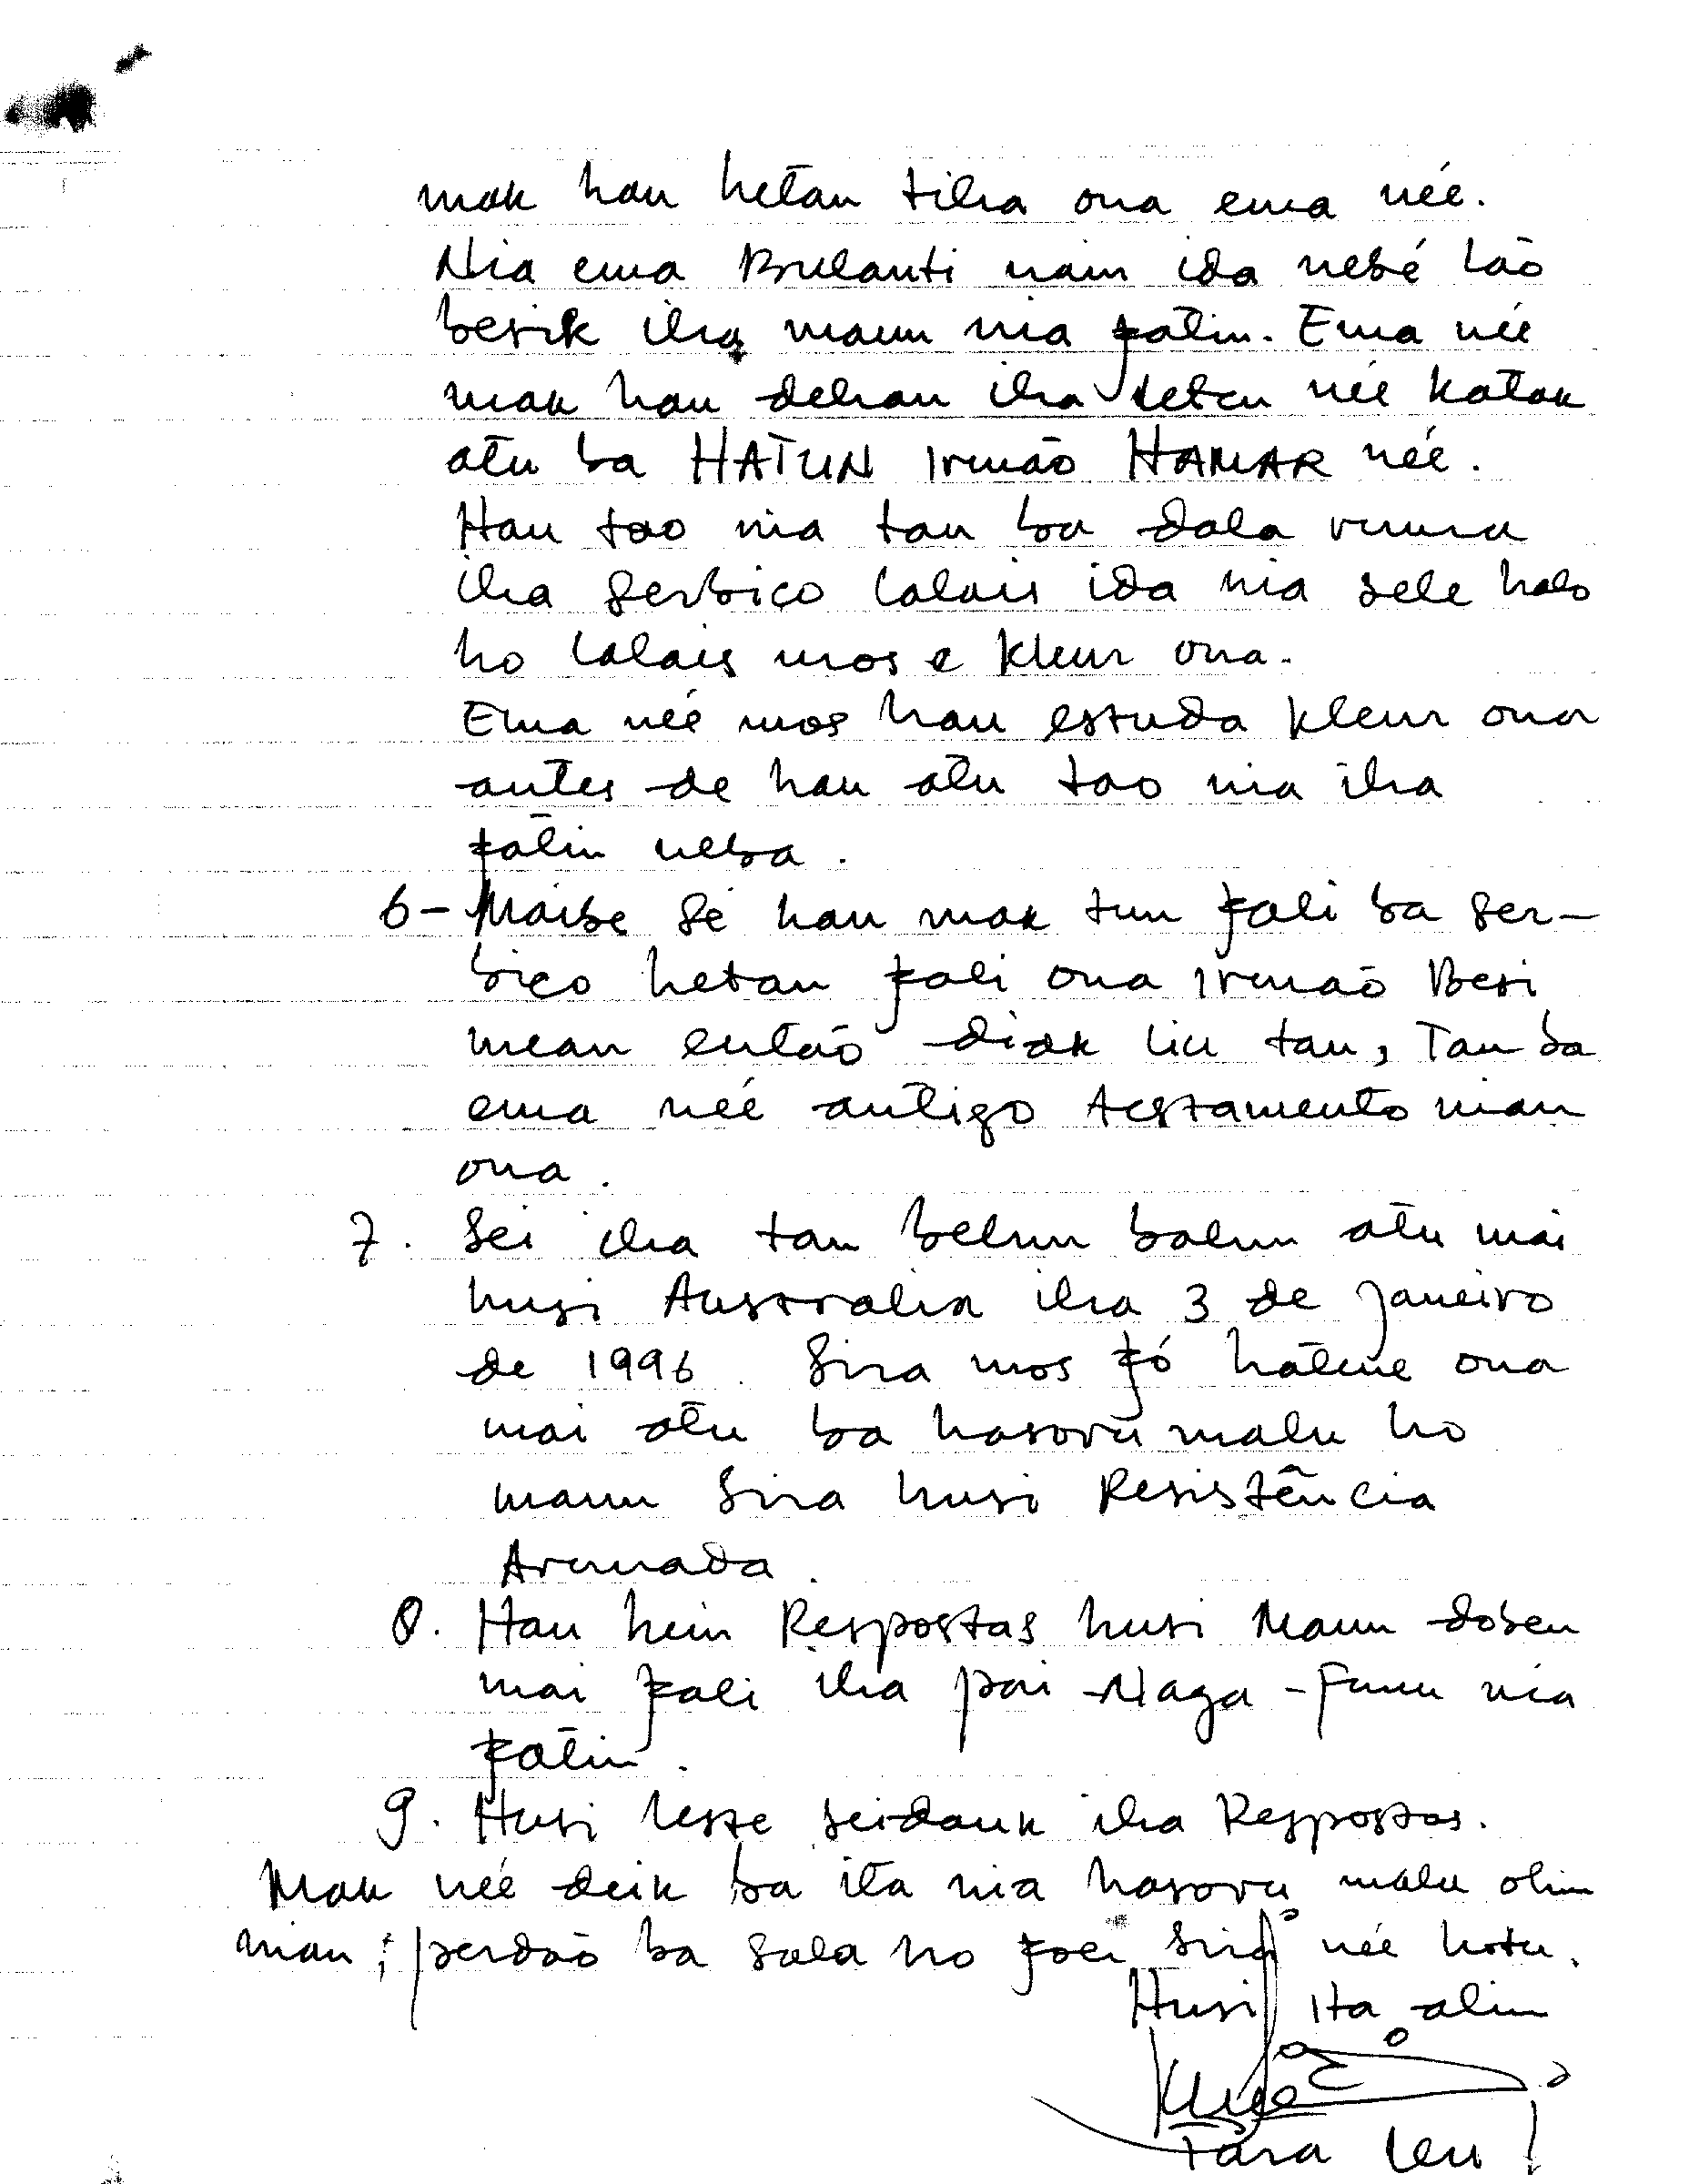 mak hau hetan tiha ona ema née.
Nia ema Brulanti nain ida nebé lão
besik iha maun nia fatin. Ema née
mak hau dehan iha leten née katak
atu ba HATUN Irmão HAMAR née.
Hau tao nia tan ba dala ruma
iha serbiço lalais ida nia sele halo
ho lalais mos e kleur ona.
Ema née mos hau estuda kleur ona
antes de hau atu tao nia iha
fatin neba.
6- Maibe sé hau mak tun fali ba ser-
biço hetan fali ona Irmão Besi
mean então diak liu tan, Tan ba
ema née antigo testamento nian
ona.
7. Sei iha tan belun balun atu mai
husi Australia iha 3 de Janeiro
de 1996. Sira mos fó hatene ona
mai atu ba hasoru malu ho
maun sira husi Resistência
Armada.
8. Hau hein Respostas husi Maun doben
mai fali iha pai Naga-Funu nia
fatin.
9. Husi leste seidauk iha Respostas.
Mak née deik ba ita nia hasoru malu ohin
nian; perdão ba sala ho foer sira née hotu.
Husi ita alin
Tara Leu!